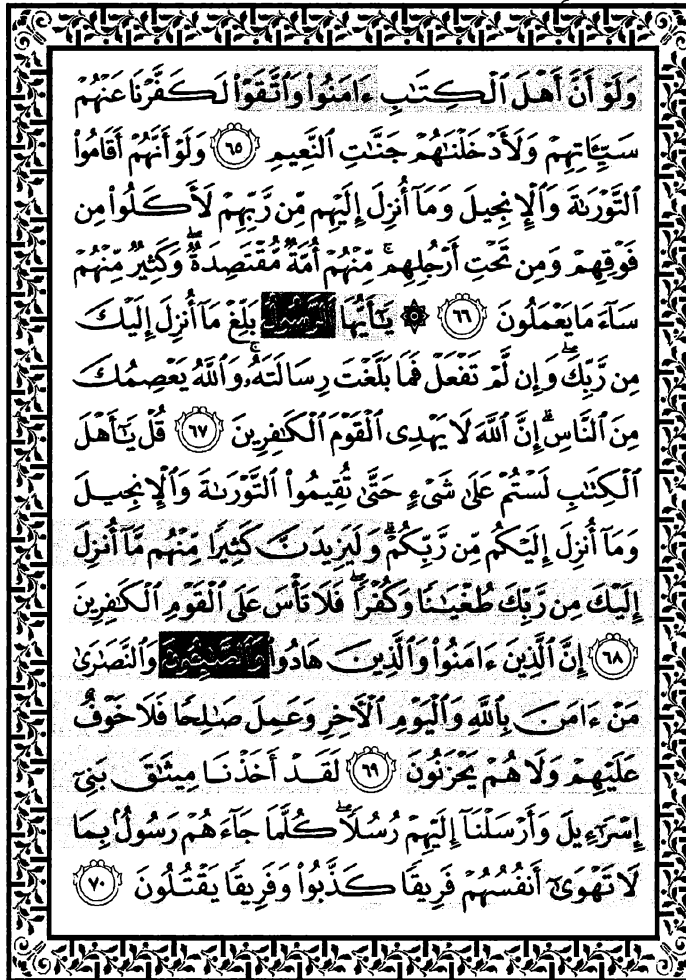 وَلَوْ أَنَّ أَهْلَ ٱلْكِتَٰبِ ءَامَنُوا۟ وَٱتَّقَوْا۟ لَكَفَّرْنَا عَنْهُمْ
سَيِّـَٔاتِهِمْ وَلَأَدْخَلْنَٰهُمْ جَنَّٰتِ ٱلنَّعِيمِ ٦٥ وَلَوْ أَنَّهُمْ أَقَامُوا۟
ٱلتَّوْرَىٰةَ وَٱلْإِنجِيلَ وَمَآ أُنزِلَ إِلَيْهِم مِّن رَّبِّهِمْ لَأَكَلُوا۟ مِن
فَوْقِهِمْ وَمِن تَحْتِ أَرْجُلِهِم ۚ مِّنْهُمْ أُمَّةٌ مُّقْتَصِدَةٌ ۖ وَكَثِيرٌ مِّنْهُمْ
سَآءَ مَا يَعْمَلُونَ ٦٦ ۞ يَٰٓأَيُّهَا ٱلرَّسُولُ بَلِّغْ مَآ أُنزِلَ إِلَيْكَ
مِن رَّبِّكَ ۖ وَإِن لَّمْ تَفْعَلْ فَمَا بَلَّغْتَ رِسَالَتَهُۥ ۚ وَٱللَّهُ يَعْصِمُكَ
مِنَ ٱلنَّاسِ ۗ إِنَّ ٱللَّهَ لَا يَهْدِى ٱلْقَوْمَ ٱلْكَٰفِرِينَ ٦٧ قُلْ يَٰٓأَهْلَ
ٱلْكِتَٰبِ لَسْتُمْ عَلَىٰ شَىْءٍ حَتَّىٰ تُقِيمُوا۟ ٱلتَّوْرَىٰةَ وَٱلْإِنجِيلَ
وَمَآ أُنزِلَ إِلَيْكُم مِّن رَّبِّكُمْ ۗ وَلَيَزِيدَنَّ كَثِيرًا مِّنْهُم مَّآ أُنزِلَ
إِلَيْكَ مِن رَّبِّكَ طُغْيَٰنًا وَكُفْرًا ۖ فَلَا تَأْسَ عَلَى ٱلْقَوْمِ ٱلْكَٰفِرِينَ
٦٨ إِنَّ ٱلَّذِينَ ءَامَنُوا۟ وَٱلَّذِينَ هَادُوا۟ وَٱلصَّٰبِـُٔونَ وَٱلنَّصَٰرَىٰ
مَنْ ءَامَنَ بِٱللَّهِ وَٱلْيَوْمِ ٱلْـَٔاخِرِ وَعَمِلَ صَٰلِحًا فَلَا خَوْفٌ
عَلَيْهِمْ وَلَا هُمْ يَحْزَنُونَ ٦٩ لَقَدْ أَخَذْنَا مِيثَٰقَ بَنِىٓ
إِسْرَٰٓءِيلَ وَأَرْسَلْنَآ إِلَيْهِمْ رُسُلًا ۖ كُلَّمَا جَآءَهُمْ رَسُولٌۢ بِمَا
لَا تَهْوَىٰٓ أَنفُسُهُمْ فَرِيقًا كَذَّبُوا۟ وَفَرِيقًا يَقْتُلُونَ ٧٠